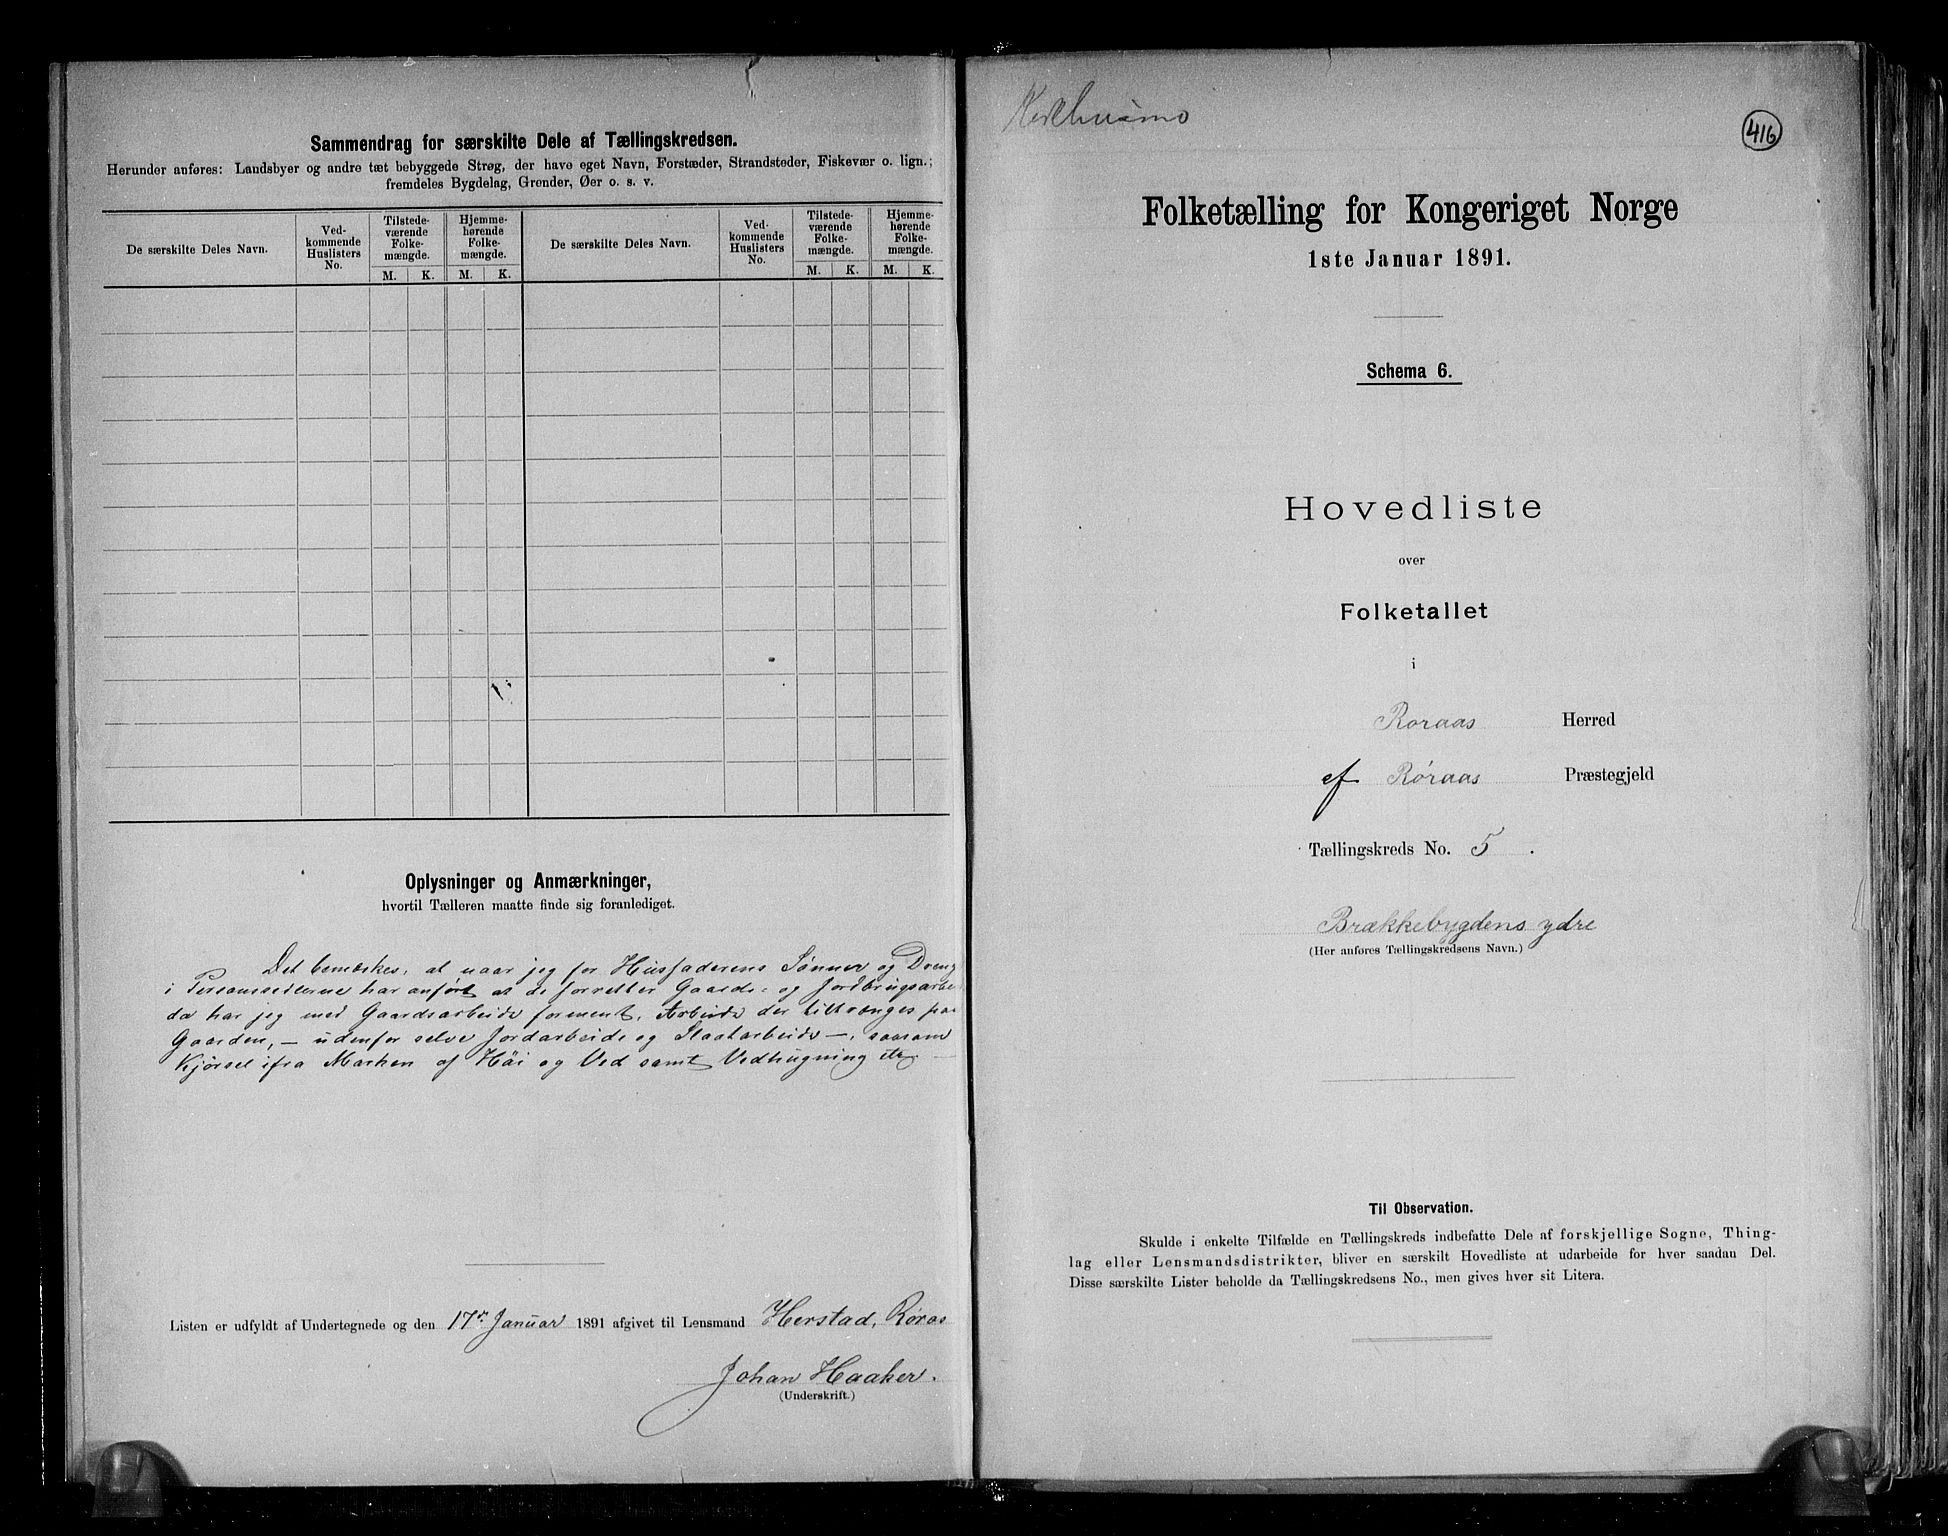 Sammendrag for særskilte Dele af Tællingskredsen.
Herunder anføres: Landsbyer og andre tæt bebyggede Strøg, der have eget Navn, Forstæder, Strandsteder, Fiskevær o. lign.;
fremdeles Bygdelag, Grender, Øer o. s. v.
De særskilte Deles Navn.
Ved-
kommende
Huslisters
No.
Tilstede-
værende
Folke-
mængde.
M. K.
Hjemme-
hørende
Folke-
mængde.
M. K.
De særskilte Deles Navn.
Ved-
kommende
Huslisters
No.
Tilstede-
værende
Folke-
mængde.
M. K.
Hjemme-
hørende
Folke-
mængde.
M. K.
Oplysninger og Anmærkninger,
hvortil Tælleren maatte finde sig foranlediget.
Det bemærkes, at naar jeg for Husfaderens Sønner og Dreng
i Personsedlerne har anført at de forretter Gaards- og Jordbrugsarbei
da har jeg med Gaardsarbeide forment, Arbeide der tiltrænges paa
Gaarden, — udenfor selve Jordarbeide og Staldarbeide —, saasom
Kjørsel ifra Marken af Høi og Ved samt Vedhugning etc. —
Listen er udfyldt af Undertegnede og den 17de Januar 1891 afgivet til Lensmand Herstad, Røros
Johan Haaker.
(Underskrift.)
416
Folketælling for Kongeriget Norge
1ste Januar 1891.
Schema 6.
Hovedliste
over
Folketallet
i
Roraas Herred
af Røraas Præstegjeld
Tællingskreds No. 5.
Brækkebygdens ydre
(Her anføres Tællingskredsens Navn.)
Til Observation.
Skulde i enkelte Tilfælde en Tællingskreds indbefatte Dele af forskjellige Sogne, Thing-
lag eller Lensmandsdistrikter, bliver en særskilt Hovedliste at udarbeide for hver saadan Del.
Disse særskilte Lister beholde da Tællingskredsens No., men gives hver sit Litera.